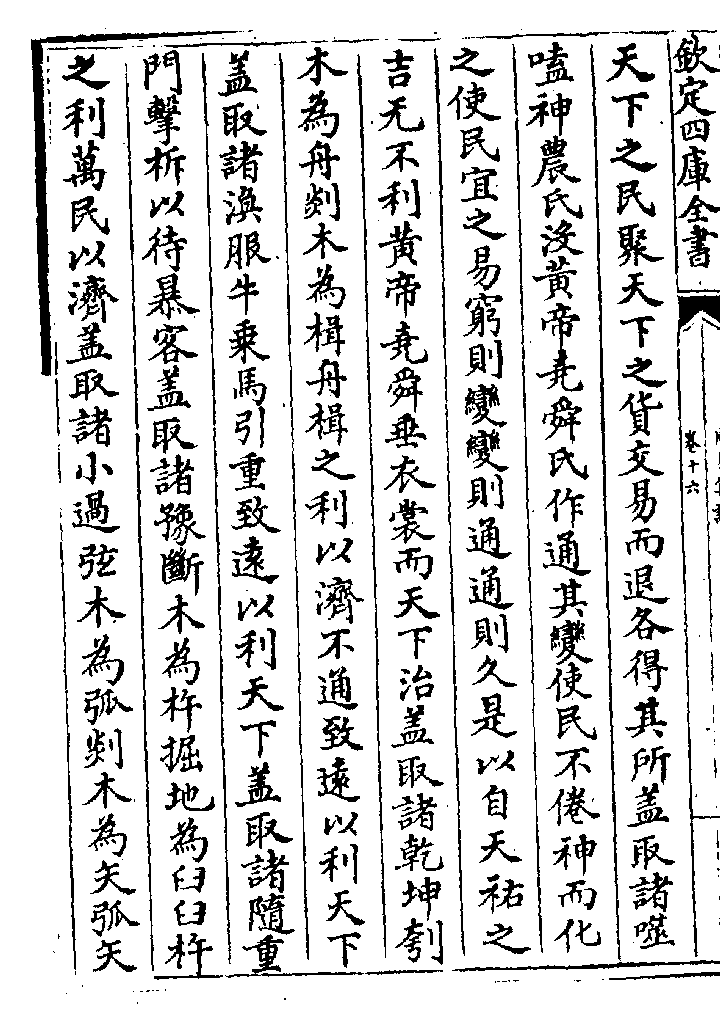 欽定四庫全書
卷十六
天下之民聚天下之貨交易而退各得其所蓋取諸噬
嗑神農氏沒黃帝堯舜氏作通其變使民不倦神而化
之使民宜之易窮則變變則通通則久是以自天祐之
吉无不利黃帝堯舜垂衣裳而天下治蓋取諸乾坤刳
木為舟剡木為楫舟楫之利以濟不通致遠以利天下
蓋取諸渙服牛乘馬引重致遠以利天下蓋取諸隨重
門擊柝以待暴客蓋取諸豫斷木為杵掘地為臼臼杵
之利萬民以濟蓋取諸小過弦木為弧剡木為矢弧矢